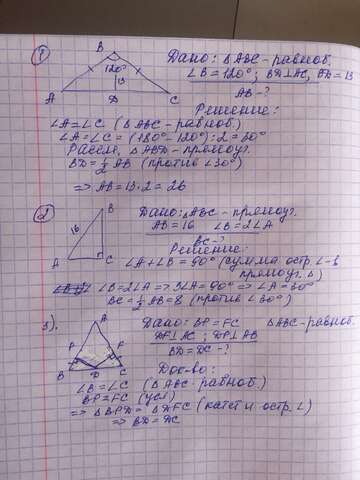 1) Дано: △ABC - равноб.
∠B = 120°; BD⊥AC, BD = 13
AB - ?
B
120°
13
A D C
Решение:
∠A = ∠C (△ABC - равноб.)
∠A = ∠C = (180° - 120°) : 2 = 30°
Рассм. △ABD - прямоуг.
BD = 1/2 AB (против ∠30°)
=> AB = 13 · 2 = 26
2) Дано: △ABC - прямоуг.
AB = 16 ∠B = 2∠A
BC - ?
B
16
A C
Решение:
∠A + ∠B = 90° (сумма остр. ∠-в
прямоуг. △)
∠B = 2∠A => 3∠A = 90° => ∠A = 30°
BC = 1/2 AB = 8 (против ∠30°)
3). Дано: BP = FC △ABC - равноб.
DF⊥AC; DP⊥AB
BD = DC - ?
A
P F
B D C
Док-во:
∠B = ∠C (△ABC - равноб.)
BP = FC (усл)
=> △BPD = △DFC (катет и остр. ∠)
=> BD = DC